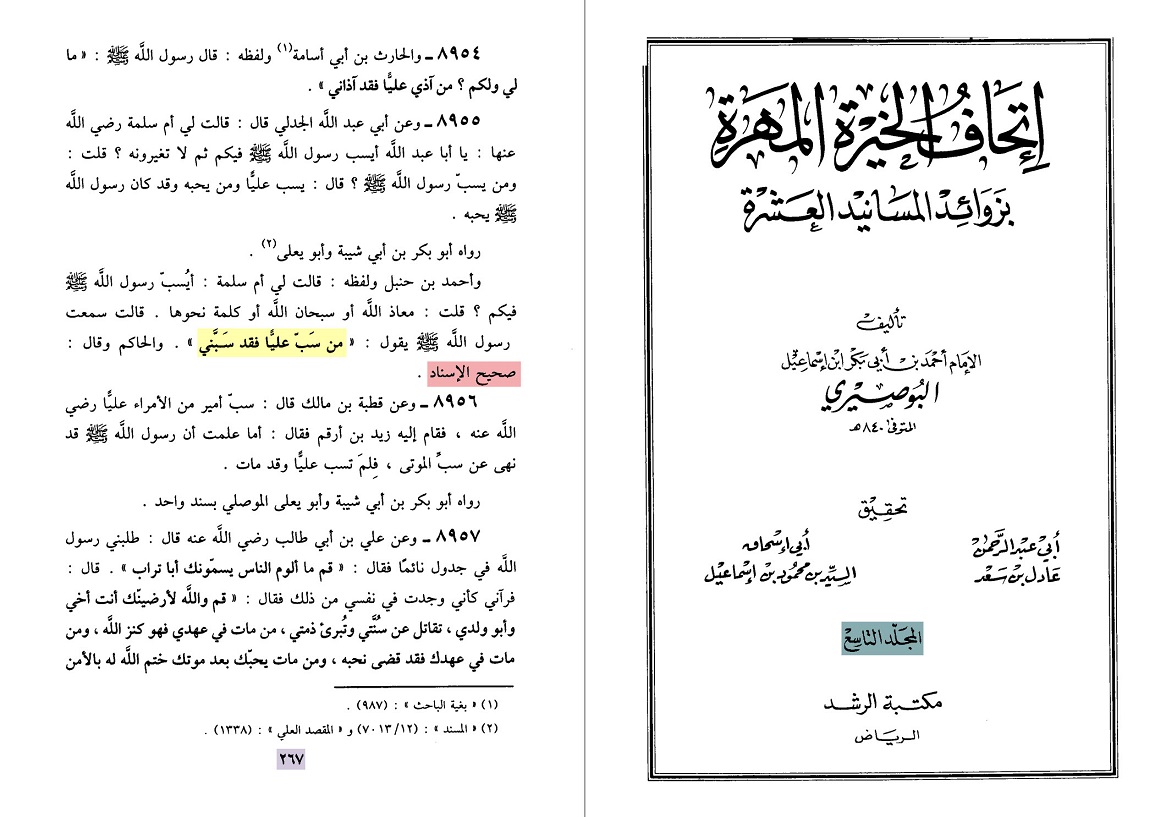 إتحاف الخيرة المهرة
بزوائد المسانيد العشرة
تأليف
الإمام أحمد بن أبي بكر ابن إسماعيل
البوصيري
المتوفى ٨٤٠هـ
تحقيق
أبي عبد الرحمن
عادل بن سعد
أبي إسحاق
السيد بن محمود بن إسماعيل
المجلد التاسع
مكتبة الرشد
الرياض
٨٩٥٤ ـ والحارث بن أبي أسامة(١) ولفظه : قال رسول اللَّه ﷺ : « ما
لي ولكم ؟ من آذي عليًّا فقد آذاني » .
٨٩٥٥ ـ وعن أبي عبد اللَّه الجدلي قال : قالت لي أم سلمة رضي اللَّه
عنها : يا أبا عبد اللَّه أيسب رسول اللَّه ﷺ فيكم ثم لا تغيرونه ؟ قلت :
ومن يسبّ رسول اللَّه ﷺ ؟ قال : يسب عليًّا ومن يحبه وقد كان رسول اللَّه
ﷺ يحبه .
رواه أبو بكر بن أبي شيبة وأبو يعلى(٢) .
وأحمد بن حنبل ولفظه : قالت لي أم سلمة : أيُسبّ رسول اللَّه ﷺ
فيكم ؟ قلت : معاذ اللَّه أو سبحان اللَّه أو كلمة نحوها . قالت سمعت
رسول اللَّه ﷺ يقول : « من سَبّ عليًّا فقد سَبَّني » . والحاكم وقال :
صحيح الإسناد .
٨٩٥٦ ـ وعن قطبة بن مالك قال : سبّ أمير من الأمراء عليًّا رضي
اللَّه عنه ، فقام إليه زيد بن أرقم فقال : أما علمت أن رسول اللَّه ﷺ قد
نهى عن سبِّ الموتى ، فِلمَ تسب عليًّا وقد مات .
رواه أبو بكر بن أبي شيبة وأبو يعلى الموصلي بسند واحد .
٨٩٥٧ ـ وعن علي بن أبي طالب رضي اللَّه عنه قال : طلبني رسول
اللَّه في جدول نائمًا فقال : « قم ما ألوم الناس يسمّونك أبا تراب » . قال :
فرآني كأني وجدت في نفسي من ذلك فقال : « قم واللَّه لأرضينّك أنت أخي
وأبو ولدي ، تقاتل عن سُنَّتي وتُبرئ ذمتي ، من مات في عهدي فهو كنز اللَّه ، ومن
مات في عهدك فقد قضى نحبه ، ومن مات يحبّك بعد موتك ختم اللَّه له بالأمن
(١) « بغية الباحث » : (٩٨٧) .
(٢) « المسند » : (٧٠١٣/١٢) و « المقصد العلي » : (١٣٣٨) .
٢٦٧